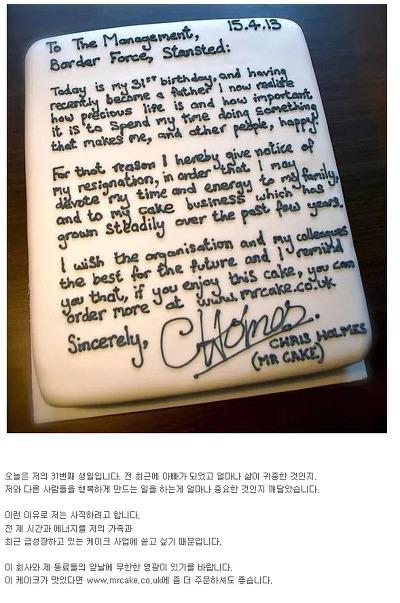 15.4.13
To The Management,
Border Force, Stansted:
Today is my 31st birthday, and having
recently become a father I now realise
how precious life is and how important
it is to spend my time doing something
that makes me, and other people, happy
For that reason I hereby give notice of
my resignation, in order that I may
devote my time and energy to my family,
and to my cake business which has
grown steadily over the past few years.
I wish the organisation and my colleagues
the best for the future and I remind
you that, if you enjoy this cake, you can
order more at www.mrcake.co.uk
Sincerely,
CHolmes.
CHRIS HOLMES
(MR CAKE)
오늘은 저의 31번째 생일입니다. 전 최근에 아빠가 되었고 얼마나 삶이 귀중한 것인지.
저와 다른 사람들을 행복하게 만드는 일을 하는게 얼마나 중요한 것인지 깨달았습니다.
이런 이유로 저는 사직하려고 합니다.
전 제 시간과 에너지를 저의 가족과
최근 급성장하고 있는 케이크 사업에 쏟고 싶기 때문입니다.
이 회사와 제 동료들의 앞날에 무한한 영광이 있기를 바랍니다.
이 케이크가 맛있다면 www.mrcake.co.uk에 좀 더 주문하셔도 좋습니다.